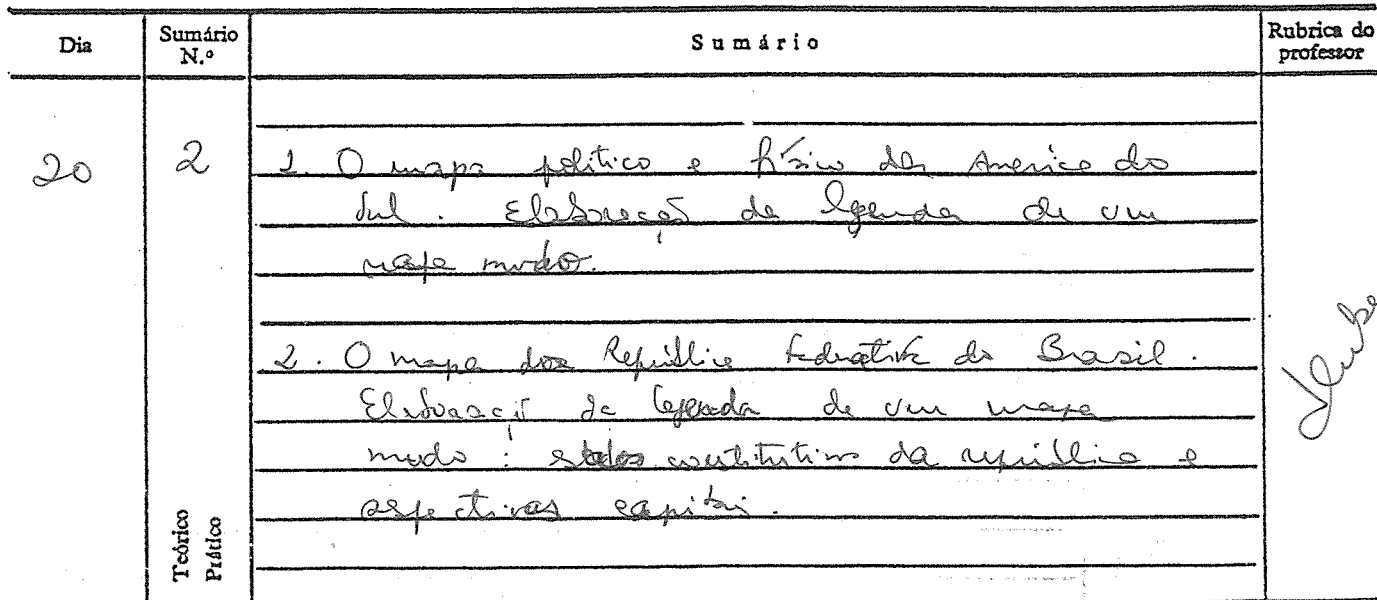 Dia
Sumário N.º
Sumário
Rubrica do professor
20
2
1. O mapa político e físico da America do
Sul. Elaboração da legenda de um
mapa mudo.
2. O mapa da República Federativa do Brasil.
Elaboração da legenda de um mapa
mudo: estados constitutivos da república e
respectivas capitais.
Teórico
Prático